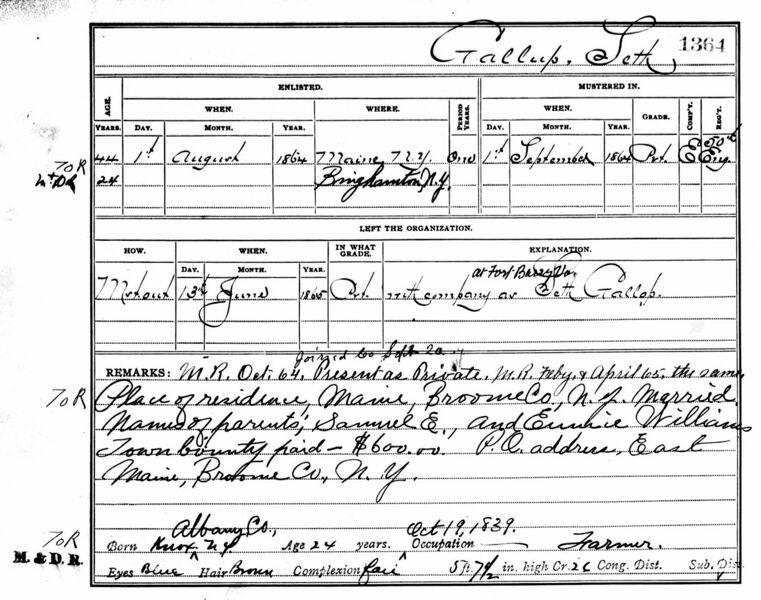 Gallup, Seth 1364
ENLISTED. MUSTERED IN.
AGE. WHEN. WHERE. PERIOD YEARS. WHEN. GRADE. COMP'Y. REG'T.
YEARS. DAY. MONTH. YEAR. DAY. MONTH. YEAR.
44 1st August 1864 Maine N.Y. One 1st September 1864 Pvt. E 50th Eng.
7oR
24 Binghamton, N.Y.
LEFT THE ORGANIZATION.
HOW. WHEN. IN WHAT GRADE. EXPLANATION.
DAY. MONTH. YEAR.
at Fort Barry Va.
M out 13th June 1865 Pvt. with company as Seth Gallop.
Joined Co Sept 20
REMARKS: M.R. Oct. 64, Present as Private. M.R. Feby. & April 65, the same.
7oR Place of residence, Maine, Broome Co, N.Y. Married.
Names of parents; Samuel E., and Eunice Williams
Town bounty paid - $600.00 P.O. address, East
Maine, Broome Co., N.Y.
Albany Co., Oct 19, 1839.
7oR Born Knox N.Y. Age 24 years. Occupation Farmer.
M. & D. R. Eyes Blue Hair Brown Complexion fair 5 ft. 7 1/2 in. high Cr. 26 Cong. Dist. Sub. Dist.